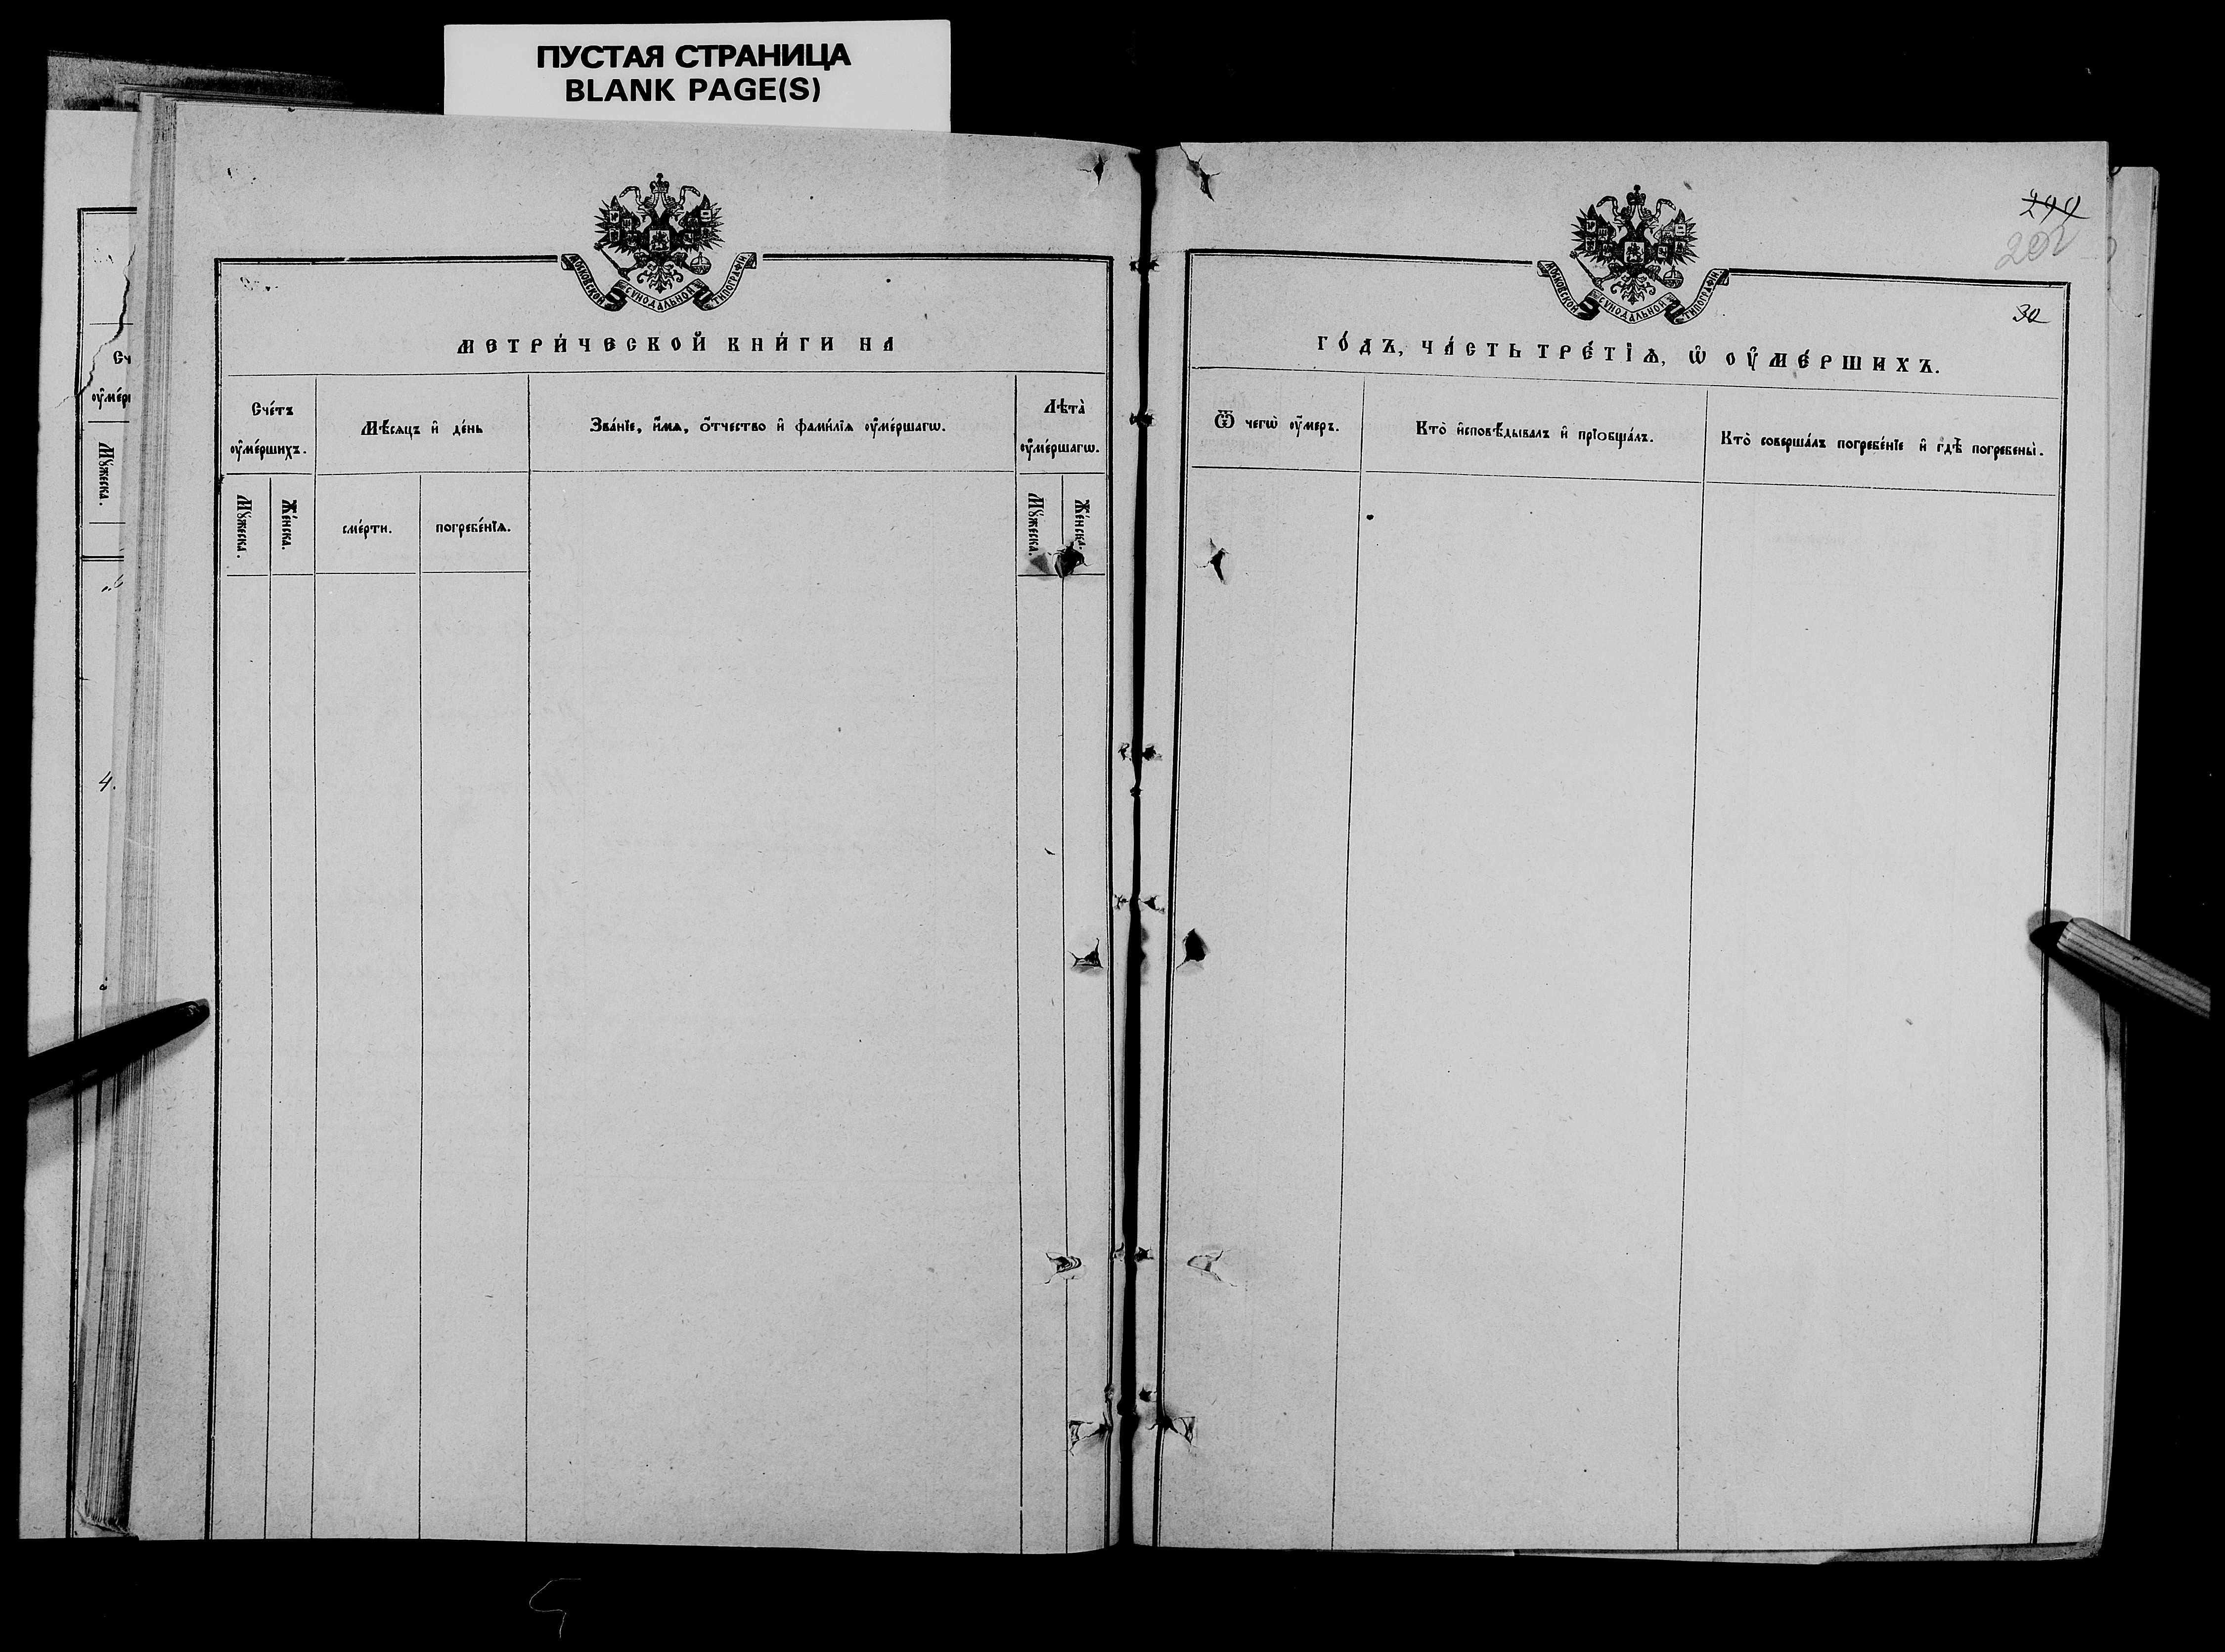 ПУСТАЯ СТРАНИЦА
BLANK PAGE(S)
МОСКОВСКОЙ СѴНОДАЛЬНОЙ ТИПОГРАФІИ
МЕТРИ́ЧЕСКОЙ КНИ́ГИ НА
Сче́тъ
ᲂу҆ме́ршихъ.
Мѣ́сяцъ и҆ де́нь
Зва́нїе, и҆́мѧ, ѻ҆́тчество и҆ фами́лїѧ ᲂу҆ме́ршагѡ.
Лѣта̀
ᲂу҆ме́ршагѡ.
Мꙋ́жеска.
Же́нска.
сме́рти.
погребе́нїѧ.
Мꙋ́жеска.
Же́нска.
299
202
МОСКОВСКОЙ СѴНОДАЛЬНОЙ ТИПОГРАФІИ
30
ГО́ДЪ, ЧА́СТЬ ТРЕ́ТЇѦ, Ѡ҆ ОУ҆МЕ́РШИХЪ.
Ѿ чегѡ̀ ᲂу҆́меръ.
Кто̀ и҆сповѣ́дывалъ и҆ прїобща́лъ.
Кто̀ соверша́лъ погребе́нїе и҆ гдѣ̀ погребены̀.
Сч
ᲂу҆ме́р
Мꙋ́жеска.
4.